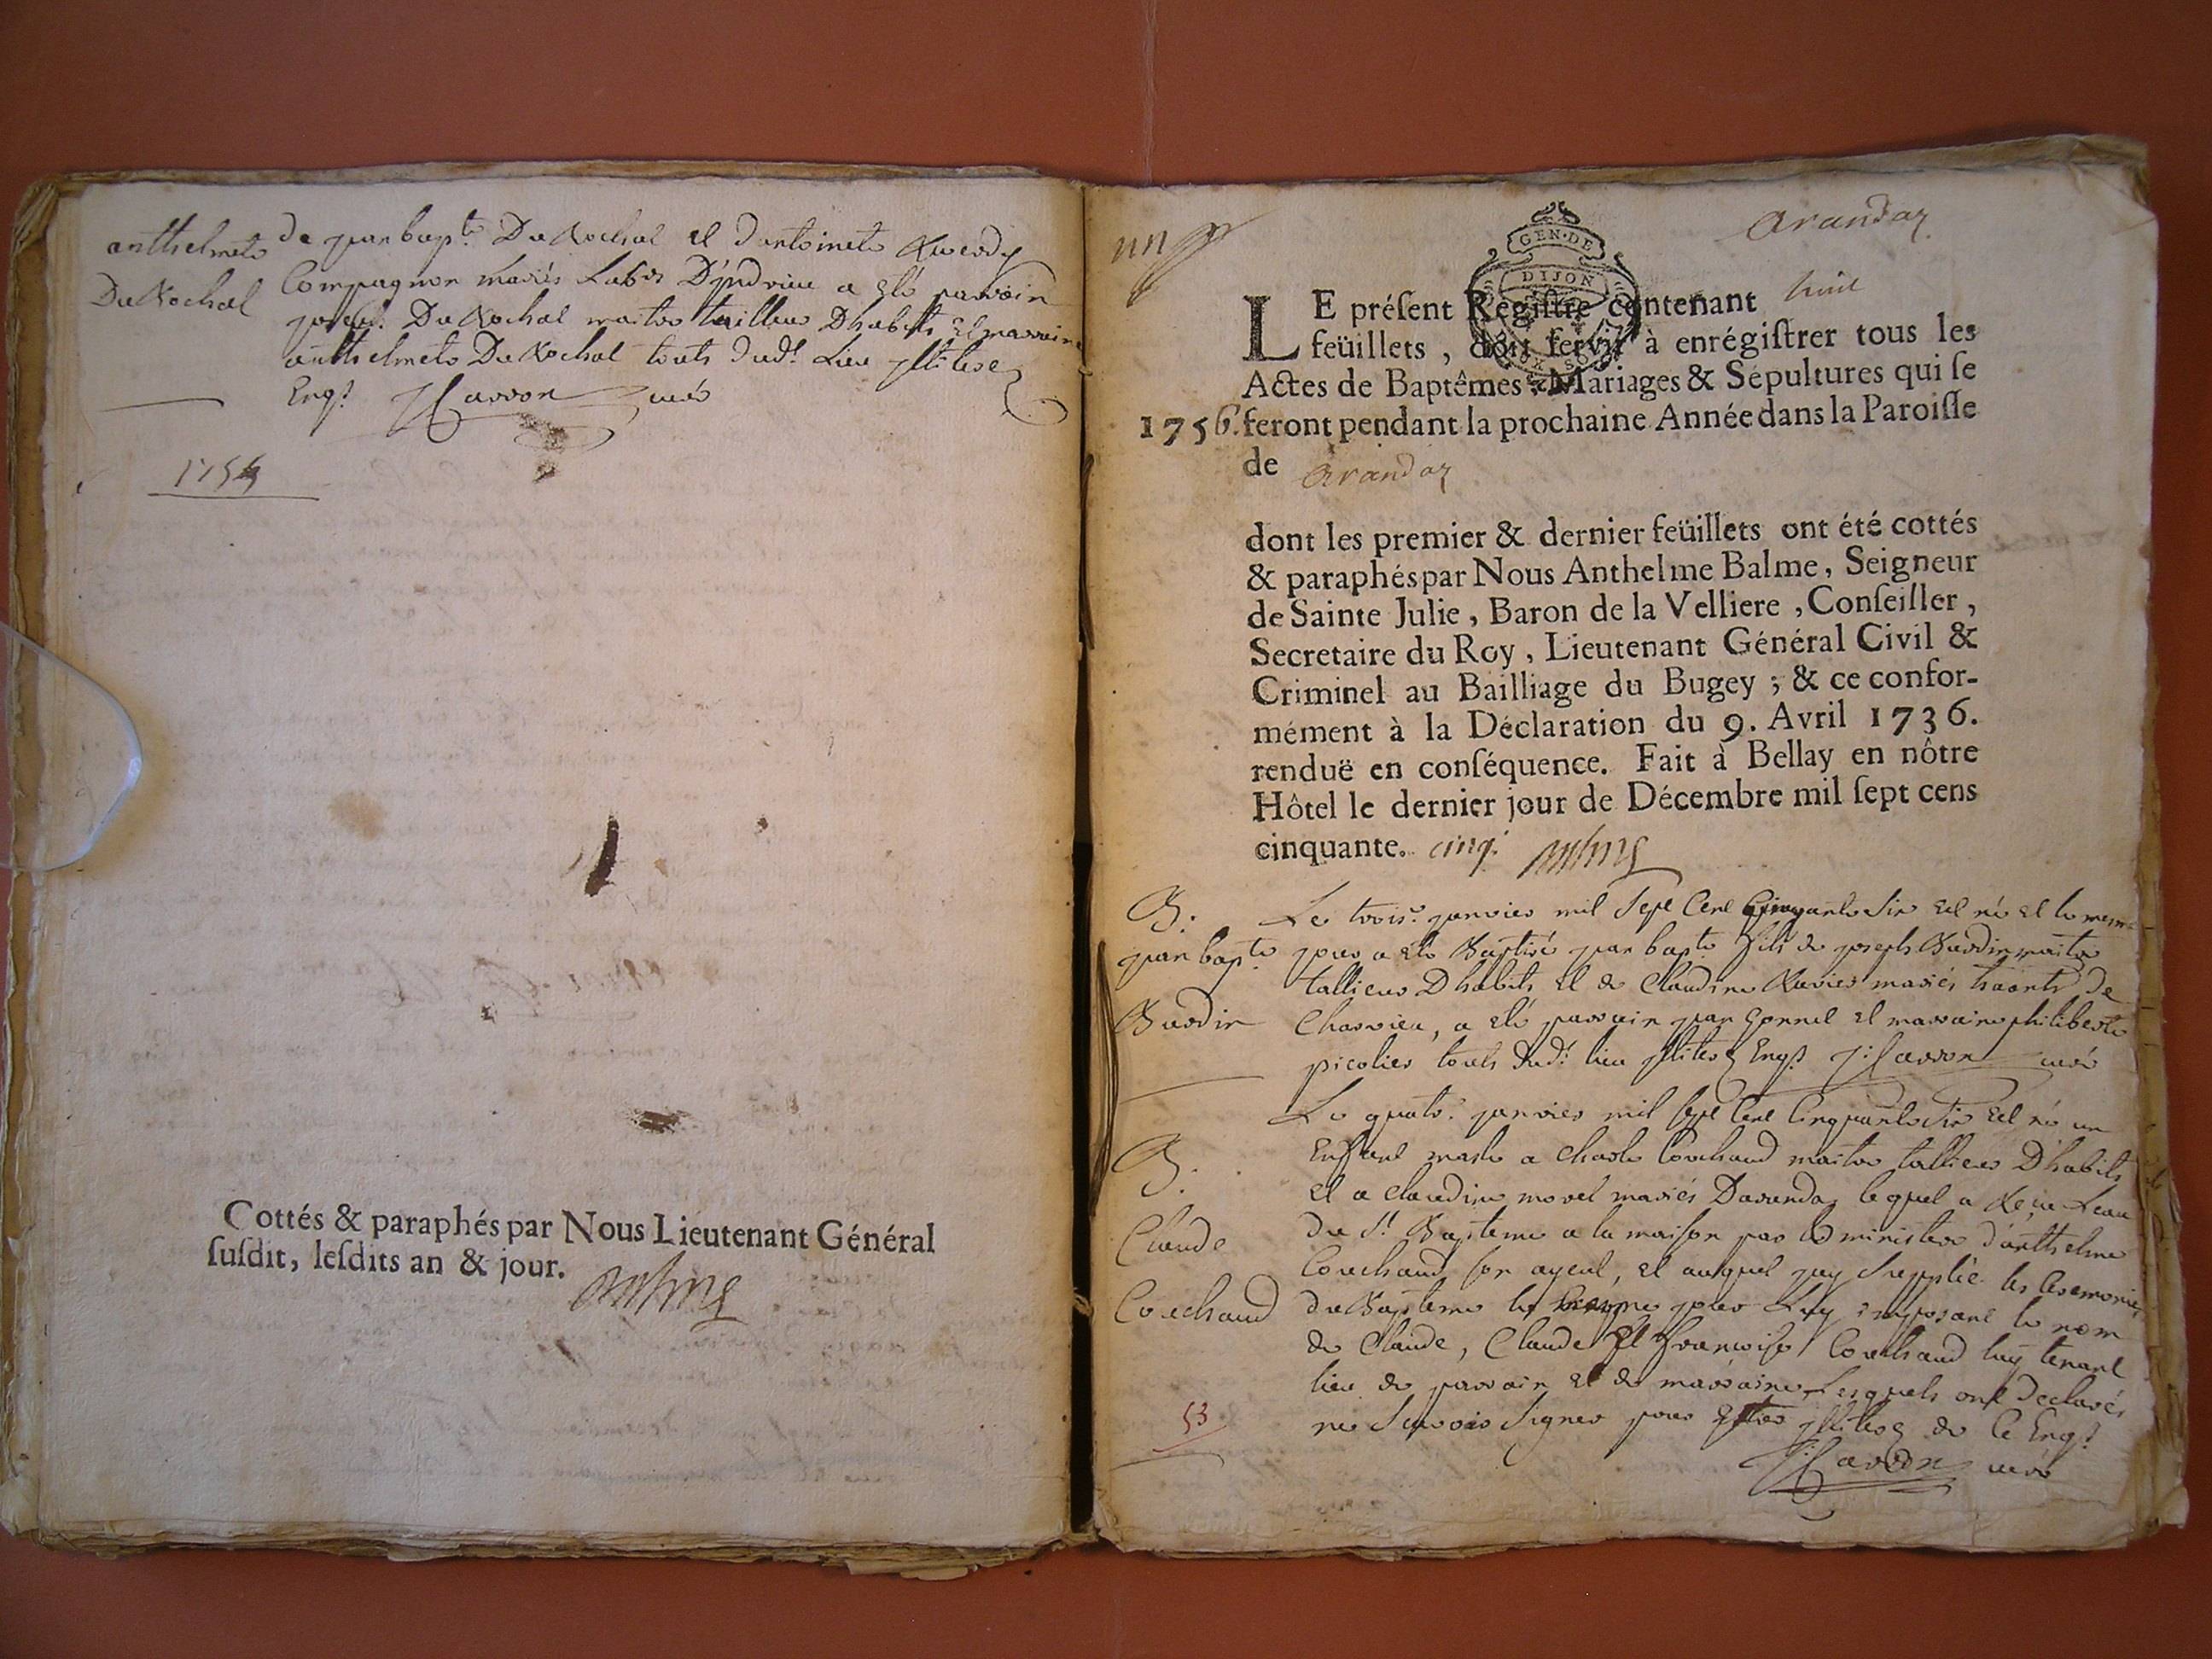 anthelmete de jean bapte. Du Rochal et d'antoinete
Du Rochal Compagnon mariés Labrs D'jndrieu a eté parrain
joseph Du Rochal maitre tailleur Dhabits et marraine
anthelmete Du Rochal touts dudt. Lieu jllitere
Enqs. Jcarron curé
1754
Cottés & paraphés par Nous Lieutenant Général
ſuſdit, leſdits an & jour.
un
Arandaz
GEN·DE
DIJON
LE préſent Regiſtre contenant huit
feüillets, doit ſervir à enrégiſtrer tous les
Actes de Baptêmes, Mariages & Sépultures qui ſe
1756. feront pendant la prochaine Année dans la Paroiſſe
de Arandaz
dont les premier & dernier feüillets ont été cottés
& paraphés par Nous Anthelme Balme, Seigneur
de Sainte Julie, Baron de la Velliere, Conſeiller,
Secretaire du Roy, Lieutenant Général Civil &
Criminel au Bailliage du Bugey ; & ce confor-
mément à la Déclaration du 9. Avril 1736.
renduë en conſéquence. Fait à Bellay en nôtre
Hôtel le dernier jour de Décembre mil ſept cens
cinquante. cinq.
B. Le trois. janvier mil Sept Cent Cinquante Six est né et le meme
jean bapte jour a eté Baptisé jean bapte. fils de joseph Burdin maitre
tallieur Dhabits et de Claudine mariés
Burdin Charvieu, a eté parrain jean Gonnet et marraine philiberte
picolier touts dudt. lieu jllitere Enqs. J: Carron curé
Le quatr. janvier mil sept Cent Cinquante Six est né un
B. Enfant masle a Charle Couchaud maitre tallieur Dhabits
et a claudine morel mariés Darandaz lequel a Reçu Leau
Claude du St. Bapteme a la maison par le ministere d'anthelme
Couchaud son ayeul, et auquel jay Supplée les Ceremonies
Couchaud du Bapteme le meme jour Luy imposant le nom
de Claude, Claude Et francoise Couchaud luy tenant
lieu de parrain et de marraine Lesquels ont declarés
53 ne Scavoir Signer pour Estre jllitere de Ce Enqs.
J: Carron curé